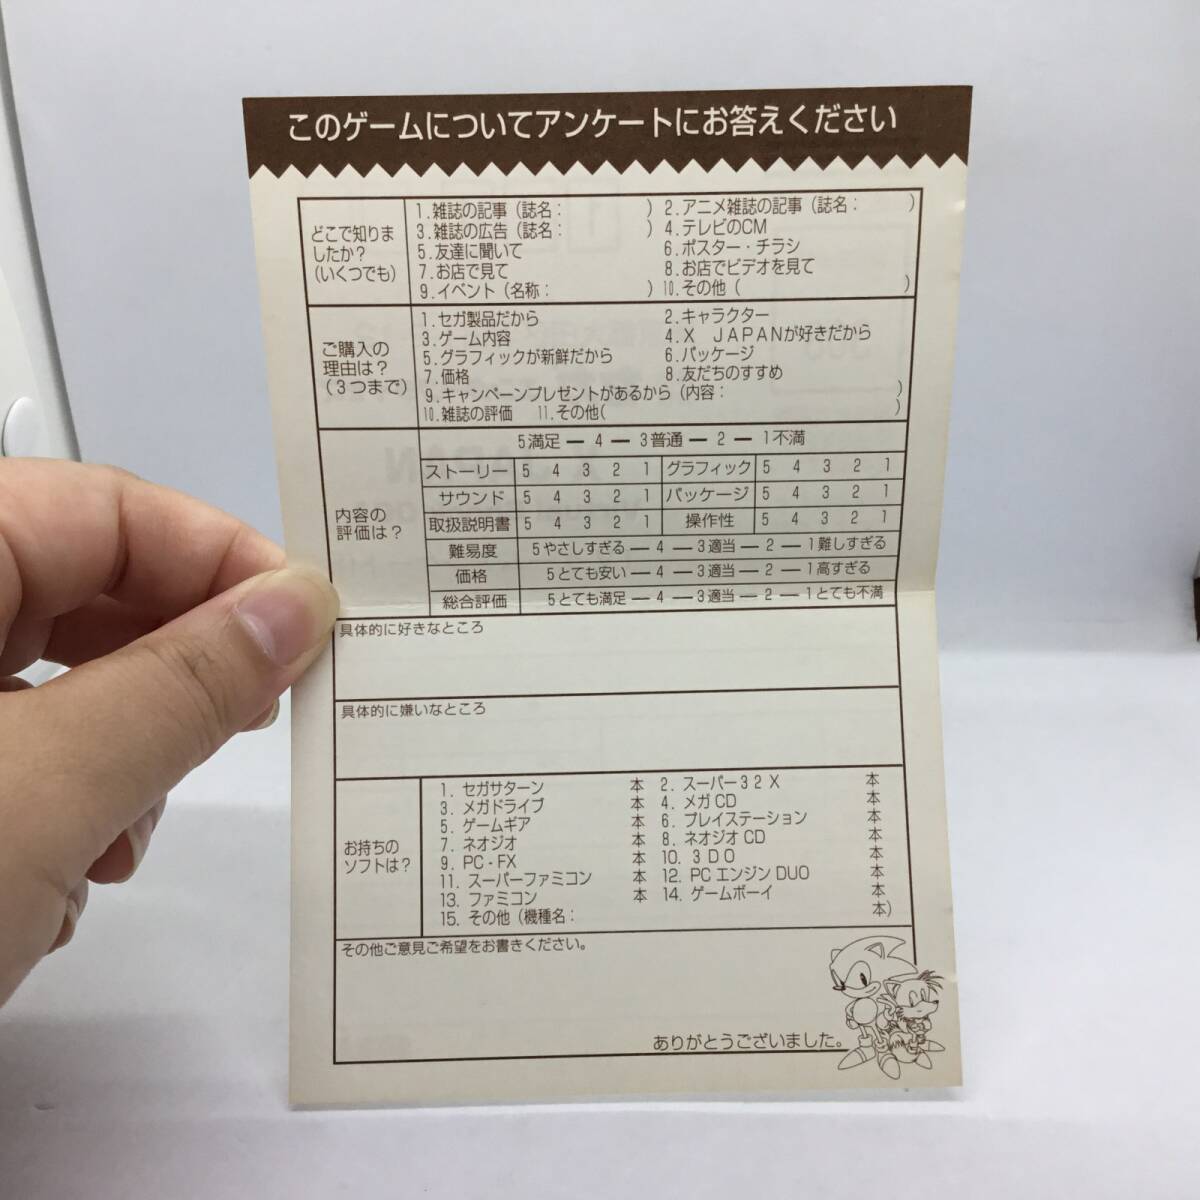 このゲームについてアンケートにお答えください
どこで知りま
したか?
(いくつでも)
1.雑誌の記事(誌名: ) 2.アニメ雑誌の記事(誌名: )
3.雑誌の広告(誌名: ) 4.テレビのCM
5.友達に聞いて 6.ポスター・チラシ
7.お店で見て 8.お店でビデオを見て
9.イベント(名称: ) 10.その他( )
ご購入の
理由は?
(3つまで)
1.セガ製品だから 2.キャラクター
3.ゲーム内容 4.X JAPANが好きだから
5.グラフィックが新鮮だから 6.パッケージ
7.価格 8.友だちのすすめ
9.キャンペーンプレゼントがあるから(内容: )
10.雑誌の評価 11.その他( )
内容の
評価は?
5満足 ― 4 ― 3普通 ― 2 ― 1不満
ストーリー 5 4 3 2 1 グラフィック 5 4 3 2 1
サウンド 5 4 3 2 1 パッケージ 5 4 3 2 1
取扱説明書 5 4 3 2 1 操作性 5 4 3 2 1
難易度 5やさしすぎる ― 4 ― 3適当 ― 2 ― 1難しすぎる
価格 5とても安い ― 4 ― 3適当 ― 2 ― 1高すぎる
総合評価 5とても満足 ― 4 ― 3適当 ― 2 ― 1とても不満
具体的に好きなところ
具体的に嫌いなところ
お持ちの
ソフトは?
1. セガサターン 本 2. スーパー32X 本
3. メガドライブ 本 4. メガCD 本
5. ゲームギア 本 6. プレイステーション 本
7. ネオジオ 本 8. ネオジオCD 本
9. PC・FX 本 10. 3DO 本
11. スーパーファミコン 本 12. PCエンジンDUO 本
13. ファミコン 本 14. ゲームボーイ 本
15. その他(機種名: 本)
その他ご意見ご希望をお書きください。
ありがとうございました。